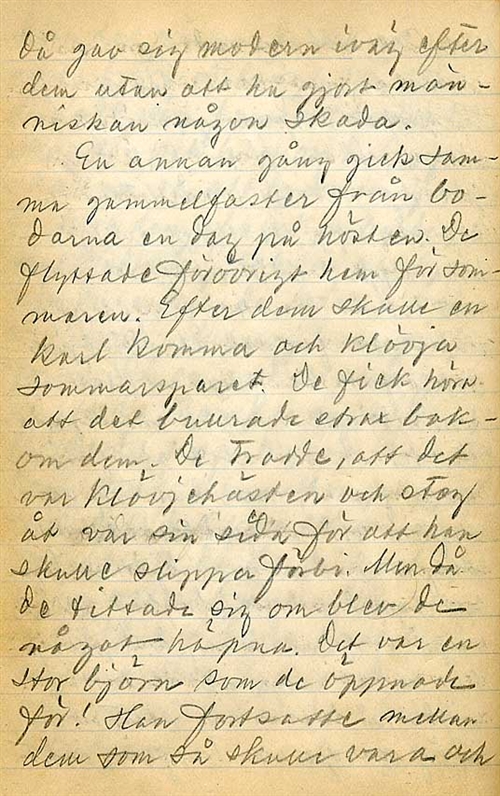 då gav sig modern iväg efter
dem utan att ha gjort män-
niskan någon skada.
En annan gång gick sam-
ma gammelfaster från bo-
darna en dag på hösten. De
flyttade förövrigt hem för som-
maren. Efter dem skulle en
karl komma och klövja
sommarsparet. De fick höra
att det bullrade strax bak-
om dem. De trodde, att det
var klövjehästen och steg
åt var sin sida för att han
skulle slippa förbi. Men då
de tittade sig om blev de
något häpna. Det var en
stor björn som de öppnade
för! Han fortsatte mellan
dem som så skulle vara och